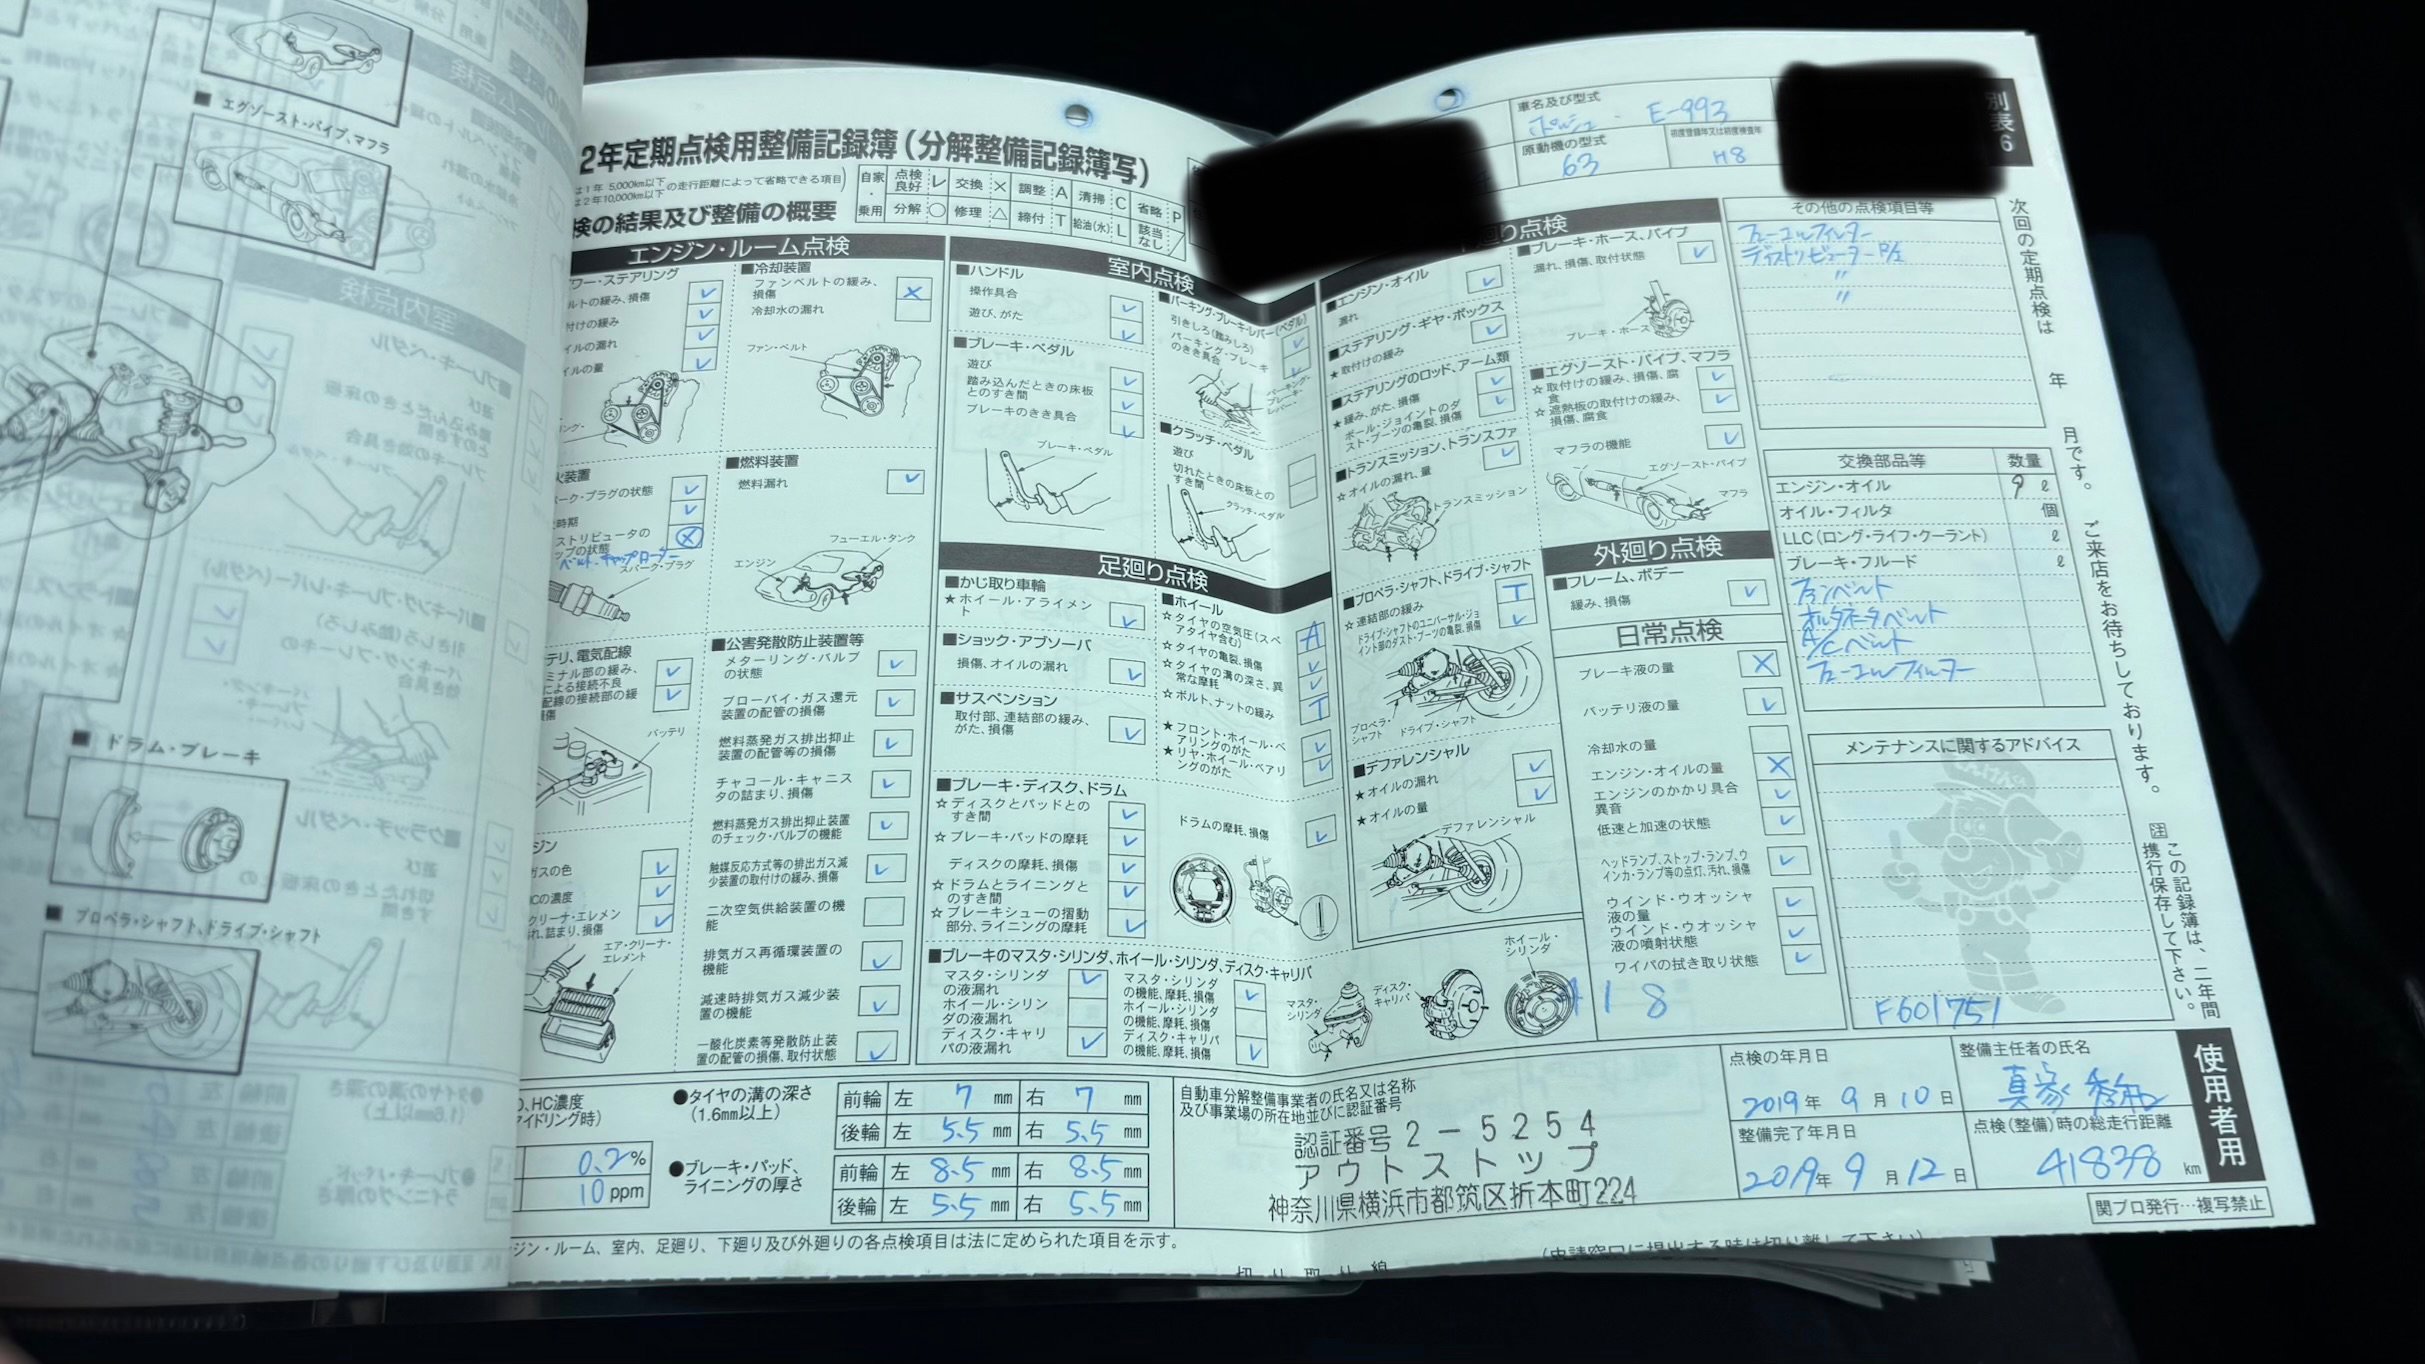 ■ エグゾースト・パイプ、マフラ
■ ドラム・ブレーキ
■ プロペラ・シャフト、ドライブ・シャフト
2年定期点検用整備記録簿(分解整備記録簿写)
は1年 5,000km以下
は2年10,000km以下
の走行距離によって省略できる項目)
検の結果及び整備の概要
自家・乗用
点検良好 レ 交換 × 調整 A 清掃 C 省略 P
分解 ○ 修理 △ 締付 T 給油(水) L 該当なし /
車名及び型式
ポルシェ E-993
原動機の型式
63
初度登録年又は初度検査年
H8
別表6
エンジン・ルーム点検
ワー・ステアリング
ルトの緩み、損傷
付けの緩み
イルの漏れ
イルの量
■冷却装置
ファンベルトの緩み、損傷
冷却水の漏れ
ファン・ベルト
火装置
ーク・プラグの状態
時期
ストリビュータの
ップの状態
ベルト・キャップローター
スパーク・プラグ
■燃料装置
燃料漏れ
フューエル・タンク
エンジン
テリ、電気配線
ミナル部の緩み、
による接続不良
配線の接続部の緩
損傷
バッテリ
ジン
ガスの色
HCの濃度
クリーナ・エレメン
れ、詰まり、損傷
エア・クリーナ・エレメント
■公害発散防止装置等
メターリング・バルブの状態
ブローバイ・ガス還元装置の配管の損傷
燃料蒸発ガス排出抑止装置の配管等の損傷
チャコール・キャニスタの詰まり、損傷
燃料蒸発ガス排出抑止装置のチェック・バルブの機能
触媒反応方式等の排出ガス減少装置の取付けの緩み、損傷
二次空気供給装置の機能
排気ガス再循環装置の機能
減速時排気ガス減少装置の機能
一酸化炭素等発散防止装置の配管の損傷、取付状態
室内点検
■ハンドル
操作具合
遊び、がた
■ブレーキ・ペダル
遊び
踏み込んだときの床板とのすき間
ブレーキのきき具合
ブレーキ・ペダル
■パーキング・ブレーキ・レバー(ペダル)
引きしろ(踏みしろ)
パーキング・ブレーキのきき具合
パーキング・ブレーキ・レバー
■クラッチ・ペダル
遊び
切れたときの床板とのすき間
クラッチ・ペダル
足廻り点検
■かじ取り車輪
★ ホイール・アライメント
■ショック・アブソーバ
損傷、オイルの漏れ
■サスペンション
取付部、連結部の緩み、がた、損傷
■ホイール
☆ タイヤの空気圧(スペアタイヤ含む)
☆ タイヤの亀裂、損傷
☆ タイヤの溝の深さ、異常な摩耗
☆ ボルト、ナットの緩み
★ フロント・ホイール・ベアリングのがた
★ リヤ・ホイール・ベアリングのがた
■ブレーキ・ディスク、ドラム
☆ ディスクとパッドとのすき間
☆ ブレーキ・パッドの摩耗
ディスクの摩耗、損傷
☆ ドラムとライニングとのすき間
☆ ブレーキシューの摺動部分、ライニングの摩耗
ドラムの摩耗、損傷
■ブレーキのマスタ・シリンダ、ホイール・シリンダ、ディスク・キャリパ
マスタ・シリンダの液漏れ
ホイール・シリンダの液漏れ
ディスク・キャリパの液漏れ
マスタ・シリンダの機能、摩耗、損傷
ホイール・シリンダの機能、摩耗、損傷
ディスク・キャリパの機能、摩耗、損傷
マスタ・シリンダ
ディスク・キャリパ
ホイール・シリンダ
廻り点検
■エンジン・オイル
漏れ
■ステアリング・ギヤ・ボックス
★ 取付けの緩み
■ステアリングのロッド、アーム類
★ 緩み、がた、損傷
ボール・ジョイントのダスト・ブーツの亀裂、損傷
■トランスミッション、トランスファ
☆ オイルの漏れ、量
トランスミッション
■プロペラ・シャフト、ドライブ・シャフト
☆ 連結部の緩み
ドライブ・シャフトのユニバーサル・ジョイント部のダスト・ブーツの亀裂、損傷
プロペラ・シャフト
ドライブ・シャフト
■デファレンシャル
★ オイルの漏れ
★ オイルの量
デファレンシャル
■ブレーキ・ホース、パイプ
漏れ、損傷、取付状態
ブレーキ・ホース
■エグゾースト・パイプ、マフラ
☆ 取付けの緩み、損傷、腐食
☆ 遮熱板の取付けの緩み、損傷、腐食
マフラの機能
エグゾースト・パイプ
マフラ
外廻り点検
■フレーム、ボデー
緩み、損傷
日常点検
ブレーキ液の量
バッテリ液の量
冷却水の量
エンジン・オイルの量
エンジンのかかり具合
異音
低速と加速の状態
ヘッドランプ、ストップ・ランプ、ウインカ・ランプ等の点灯、汚れ、損傷
ウインド・ウオッシャ液の量
ウインド・ウオッシャ液の噴射状態
ワイパの拭き取り状態
118
その他の点検項目等
フューエルフィルター
ディストリビューター
〃
〃
交換部品等 数量
エンジン・オイル 9 ℓ
オイル・フィルタ 個
LLC(ロング・ライフ・クーラント) ℓ
ブレーキ・フルード ℓ
ファンベルト
オルタネータベルト
A/Cベルト
フューエルフィルター
メンテナンスに関するアドバイス
F601751
次回の定期点検は 年 月です。 ご来店をお待ちしております。
注 この記録簿は、二年間携行保存して下さい。
使用者用
O、HC濃度
アイドリング時)
0.2%
10 ppm
●タイヤの溝の深さ
(1.6mm以上)
前輪 左 7 mm 右 7 mm
後輪 左 5.5 mm 右 5.5 mm
●ブレーキ・パッド、
ライニングの厚さ
前輪 左 8.5 mm 右 8.5 mm
後輪 左 5.5 mm 右 5.5 mm
自動車分解整備事業者の氏名又は名称
及び事業場の所在地並びに認証番号
認証番号2-5254
アウトストップ
神奈川県横浜市都筑区折本町224
点検の年月日
2019年 9月 10日
整備完了年月日
2019年 9月 12日
整備主任者の氏名
点検(整備)時の総走行距離
41838 km
関プロ発行…複写禁止
ジン・ルーム、室内、足廻り、下廻り及び外廻りの各点検項目は法に定められた項目を示す。
切り取り線
(申請窓口に提出する時は切り離して下さい)